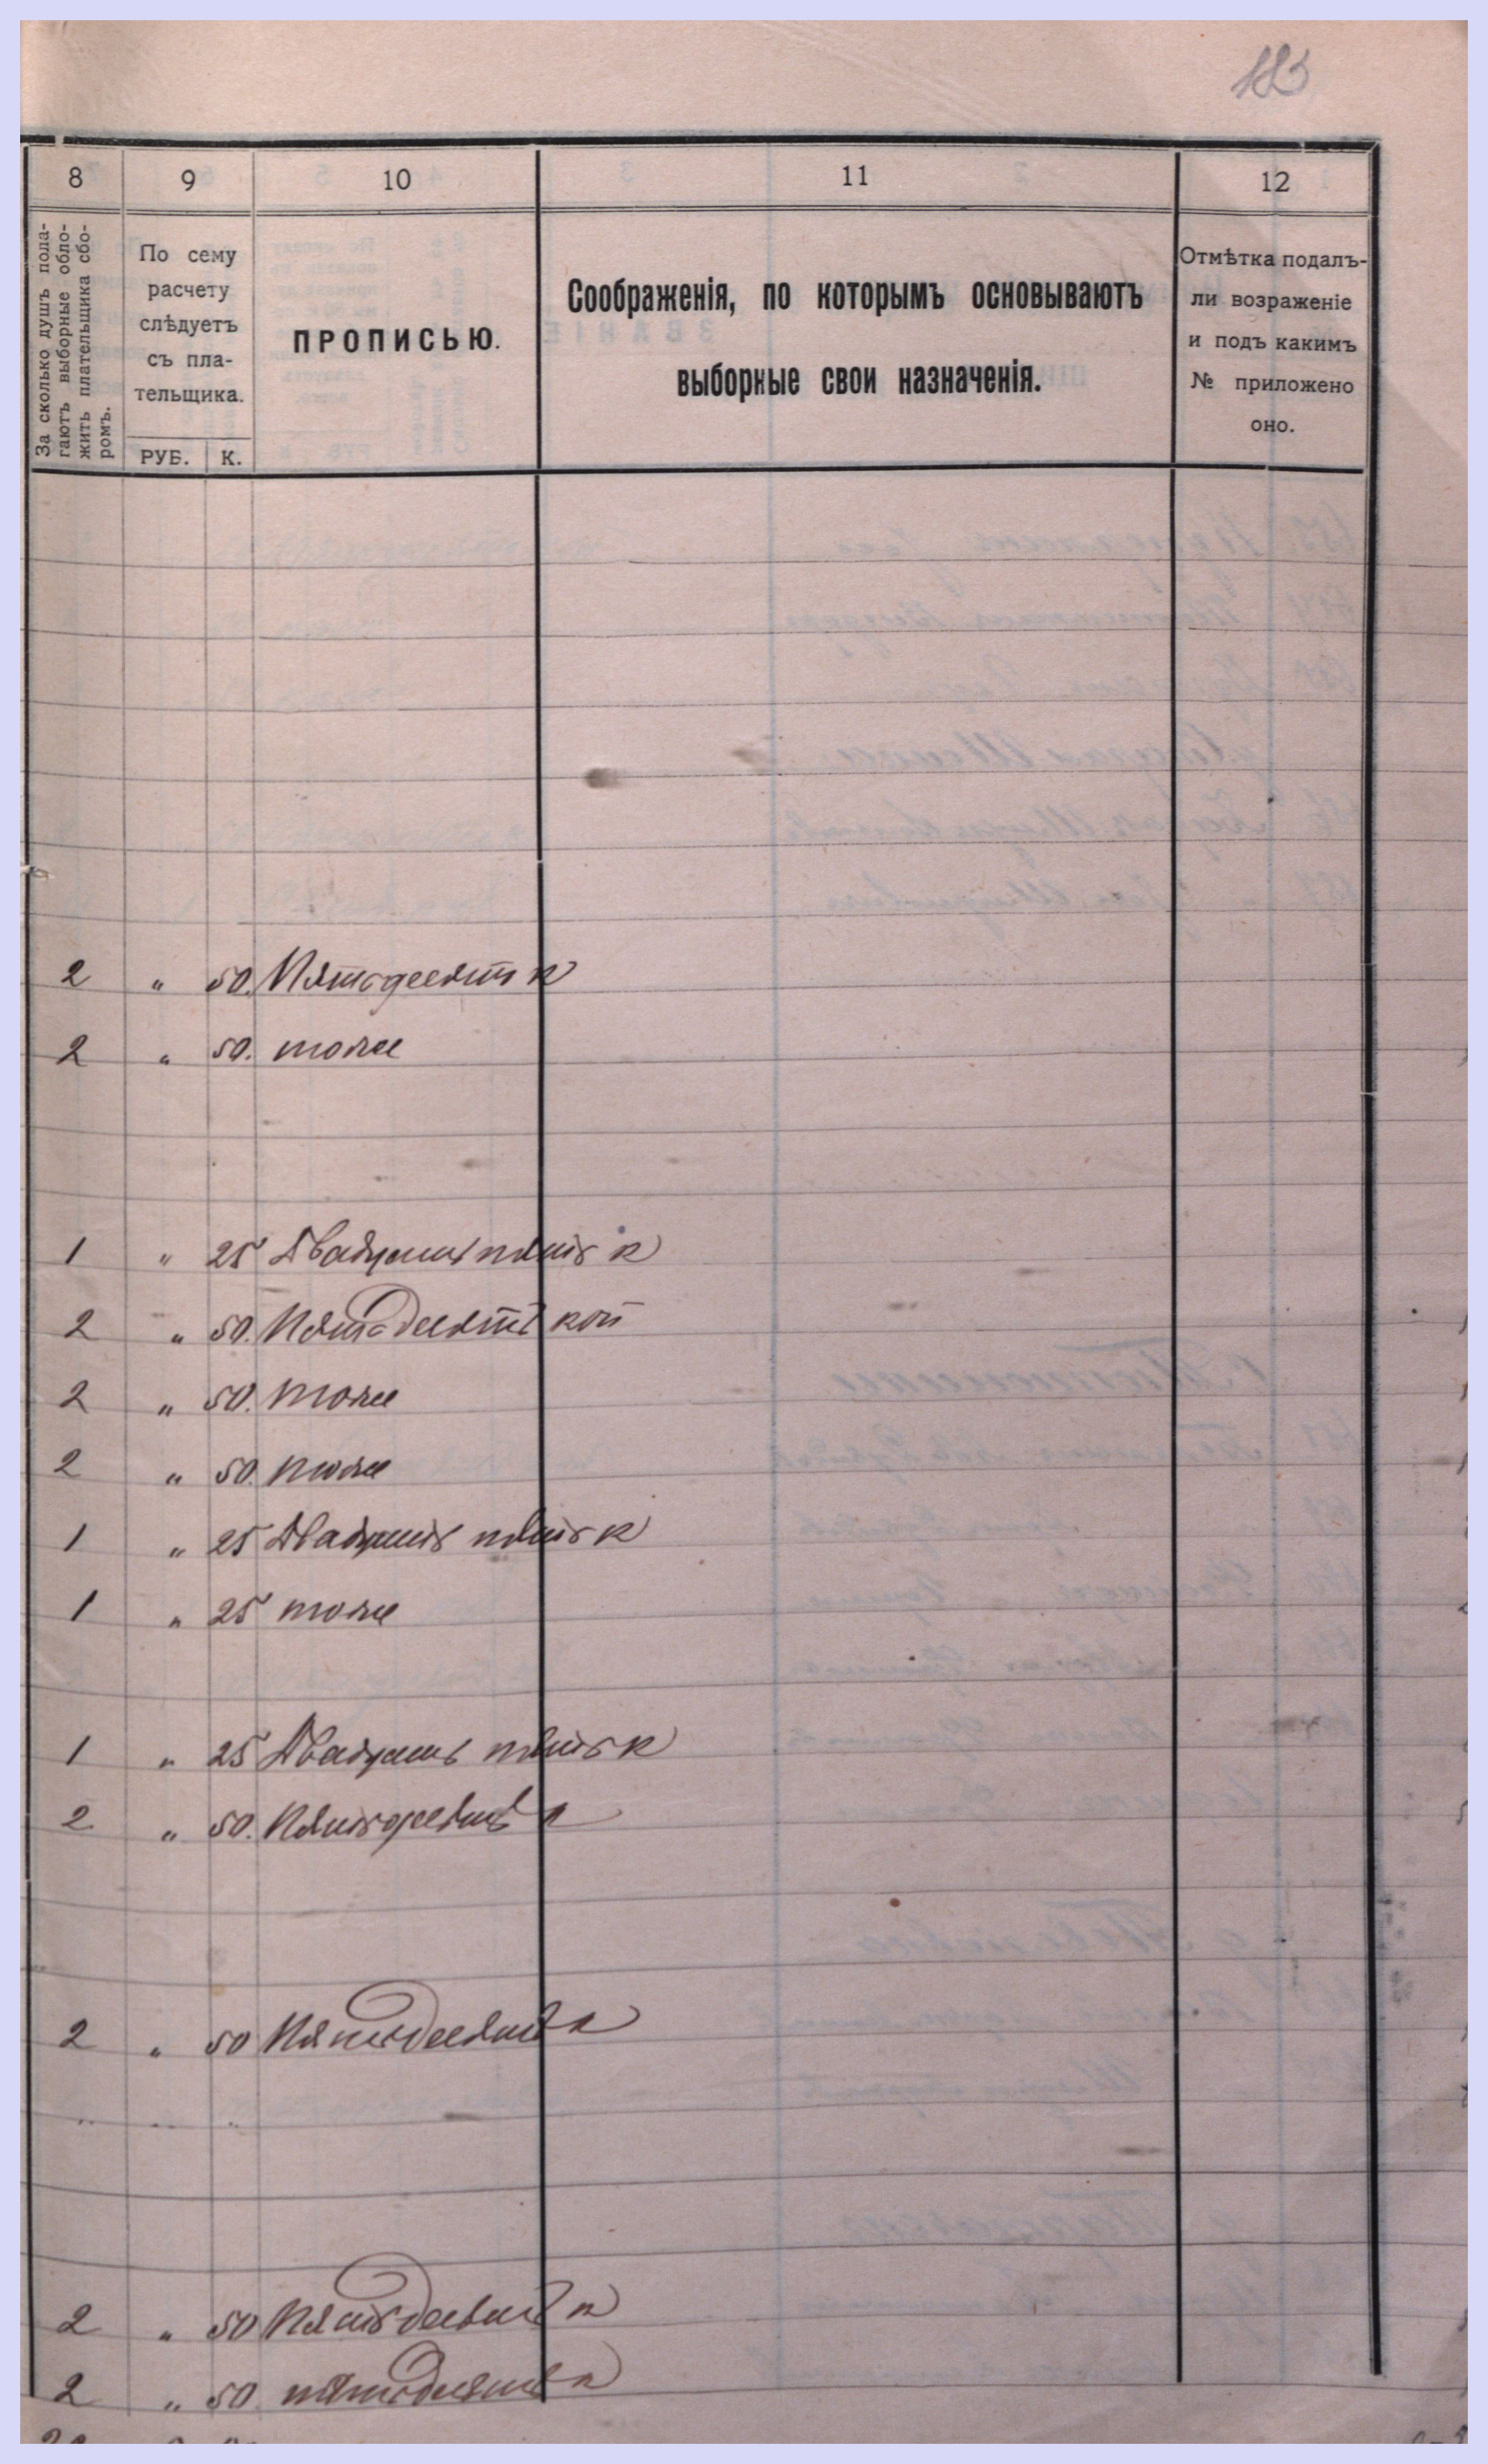 183
8 9 10 11 12
За сколько душъ пола-
гаютъ выборные обло-
жить плательщика сбо-
ромъ.
По сему
расчету
слѣдуетъ
съ пла-
тельщика.
РУБ. К.
ПРОПИСЬЮ.
Соображенія, по которымъ основываютъ
выборные свои назначенія.
Отмѣтка подалъ-
ли возраженіе
и подъ какимъ
№ приложено
оно.
2 " 50. Пятьдесят к
2 " 50. тоже
1 " 25 Двадцать пять к
2 " 50. Пятьдесятъ коп
2 " 50. тоже
2 " 50. тоже
1 " 25 Двадцать пять к
1 " 25 тоже
1 " 25 Двадцать пять к
2 " 50. Пятьдесятъ к
2 " 50 Пятьдесятъ к
" " "
2 " 50 Пятьдесятъ к
2 " 50. пятьдесятъ к